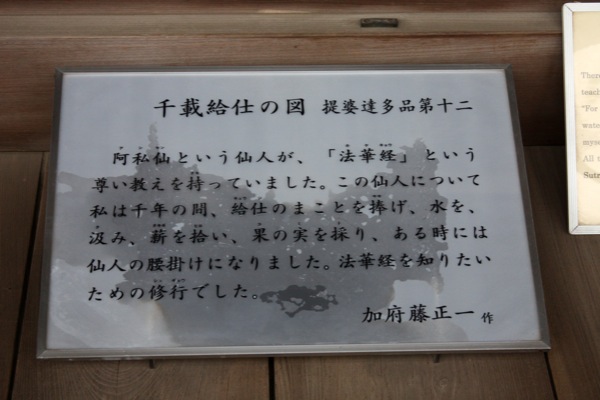 千載給仕の図 提婆達多品第十二
阿私仙という仙人が、「法華経」という
尊い教えを持っていました。この仙人について
私は千年の間、給仕のまことを捧げ、水を、
汲み、薪を拾い、果の実を採り、ある時には
仙人の腰掛けになりました。法華経を知りたい
ための修行でした。
加府藤正一 作
There
teach
"For
wate
myse
All t
Sutr